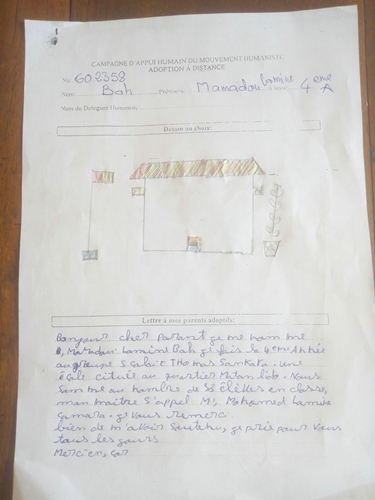 CAMPAGNE D'APPUI HUMAIN DU MOUVEMENT HUMANISTE
ADOPTION A DISTANCE
No 602358
Nom Bah Prénom Mamadou Lamine Classe 4 eme A
Nom du Délégué Humaniste
Dessin au choix:
Lettre à mes parents adoptifs:
Bonjour cher parant je me nom me
Mamadou Lamine Bah je fais la 4 eme Année
au groupe S colaire THomas Sankara. une
École cituée au quartier Matam lob. Nous
Som me au nombre de 58 Élèves en classe,
mon maître S'appel Mr, Mohamed Lamine
Camara. je vous remerci.
bien de m'avoir Soutenu, je prie pour vous
tous les jours
Merci en, cor